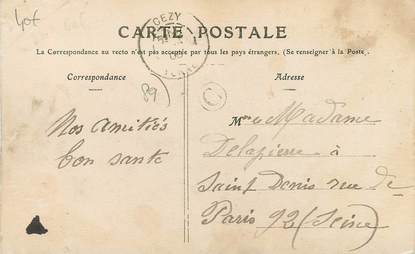 40f
CEZY
YONNE
CARTE POSTALE
La Correspondance au recto n'est pas acceptée par tous les pays étrangers. (Se renseigner à la Poste.
Correspondance
Adresse
89
C
M Madame
Nos amitiés
Delapierre à
bon santé
Saint Denis rue de
Paris 92 (Seine)